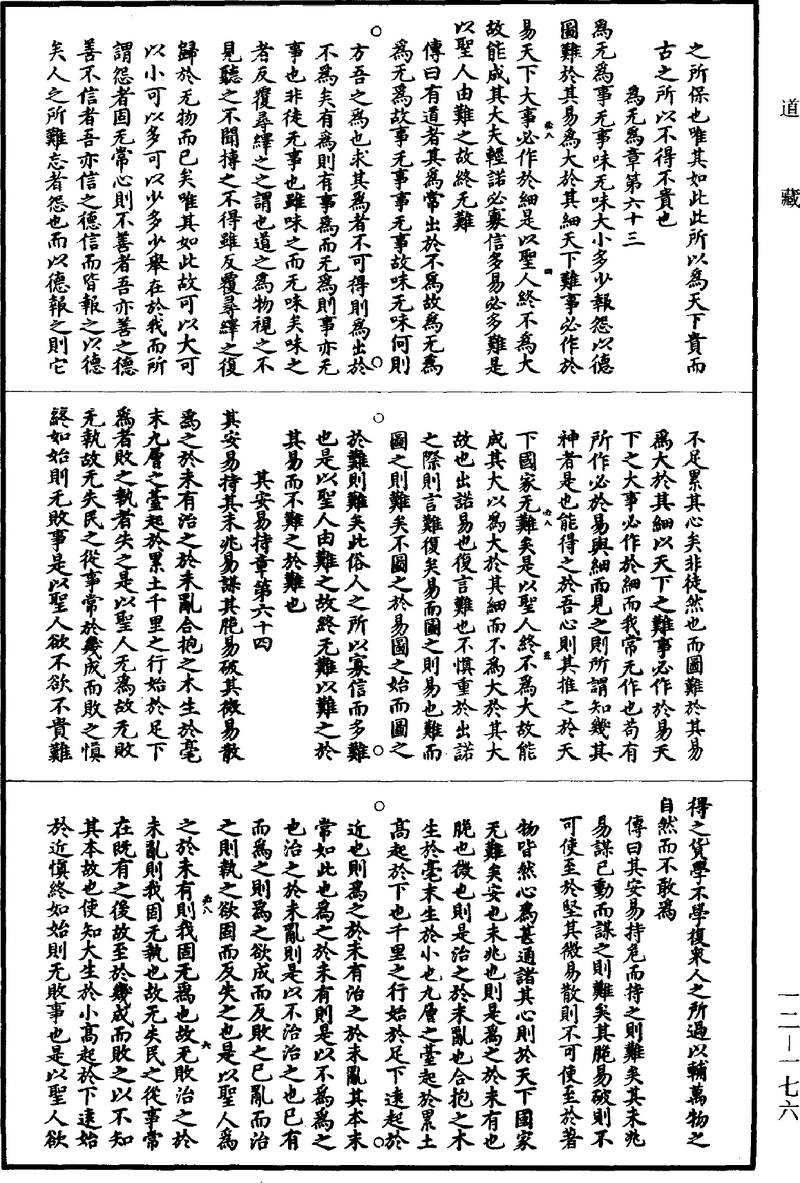 道藏
之所保也唯其如此此所以為天下貴而
古之所以不得不貴也
為无為章第六十三
為无為事无事味无味大小多少報怨以德
圖難於其易為大於其細天下難事必作於
易天下大事必作於細是以聖人終不為大
故能成其大夫輕諾必寡信多易必多難是
以聖人由難之故終无難
傳曰有道者其為常出於不為故為无為
為无為故事无事事无事故味无味何則
方吾之為也求其為者不可得則為出於
不為矣有為則有事為而无為則事亦无
事也非徒无事也雖味之而无味矣味之
者反覆尋繹之之謂也道之為物視之不
見聽之不聞摶之不得雖反覆尋繹之復
歸於无物而已矣唯其如此故可以大可
以小可以多可以少多少舉在於我而所
謂怨者固无常心則不善者吾亦善之德
善不信者吾亦信之德信而皆報之以德
矣人之所難忘者怨也而以德報之則它
不足累其心矣非徒然也而圖難於其易
為大於其細以天下之難事必作於易天
下之大事必作於細而我常无作也苟有
所作必於易與細而見之則所謂知幾其
神者是也能得之於吾心則其推之於天
下國家无難矣是以聖人終不為大故能
成其大以為大於其細而不為大於其大
故也出諾易也復言難也不慎重於出諾
之際則言難復矣易而圖之則易也難而
圖之則難矣不圖之於易圖之始而圖之
於難則難矣此俗人之所以寡信而多難
也是以聖人由難之故終无難以難之於
其易而不難之於難也
其安易持章第六十四
其安易持其未兆易謀其脆易破其微易散
為之於未有治之於未亂合抱之木生於毫
末九層之臺起於累土千里之行始於足下
為者敗之執者失之是以聖人无為故无敗
无執故无失民之從事常於幾成而敗之慎
終如始則无敗事是以聖人欲不欲不貴難
得之貨學不學復眾人之所過以輔萬物之
自然而不敢為
傳曰其安易持危而持之則難矣其未兆
易謀已動而謀之則難矣其脆易破則不
可使至於堅其微易散則不可使至於著
物皆然心為甚通諸其心則於天下國家
无難矣安也未兆也則是為之於未有也
脆也微也則是治之於未亂也合抱之木
生於毫末生於小也九層之臺起於累土
高起於下也千里之行始於足下遠起於
近也則為之於未有治之於未亂其本末
常如此也為之於未有則是以不為為之
也治之於未亂則是以不治治之也已有
而為之則為之欲成而反敗之已亂而治
之則執之欲固而反失之也是以聖人為
之於未有則我固无為也故无敗治之於
未亂則我固无執也故无失民之從事常
在既有之後故至於幾成而敗之以不知
其本故也使知大生於小高起於下遠始
於近慎終如始則无敗事也是以聖人欲
一二—一七六